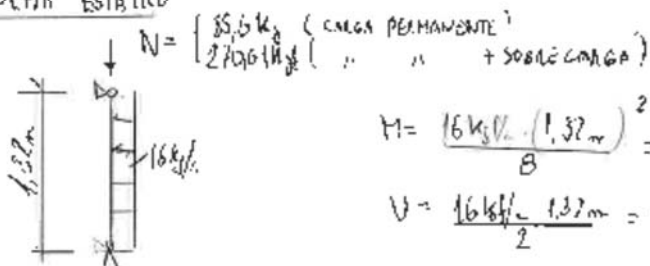 ESTÁTICO
N = { 85,6 kg (CARGA PERMANENTE)
270,61 kg ( " " + SOBRECARGA)
1,32 m
16 kgf/m
M = 16 kgf/m · (1,32 m)² / 8 =
V = 16 kgf/m 1,32 m / 2 =